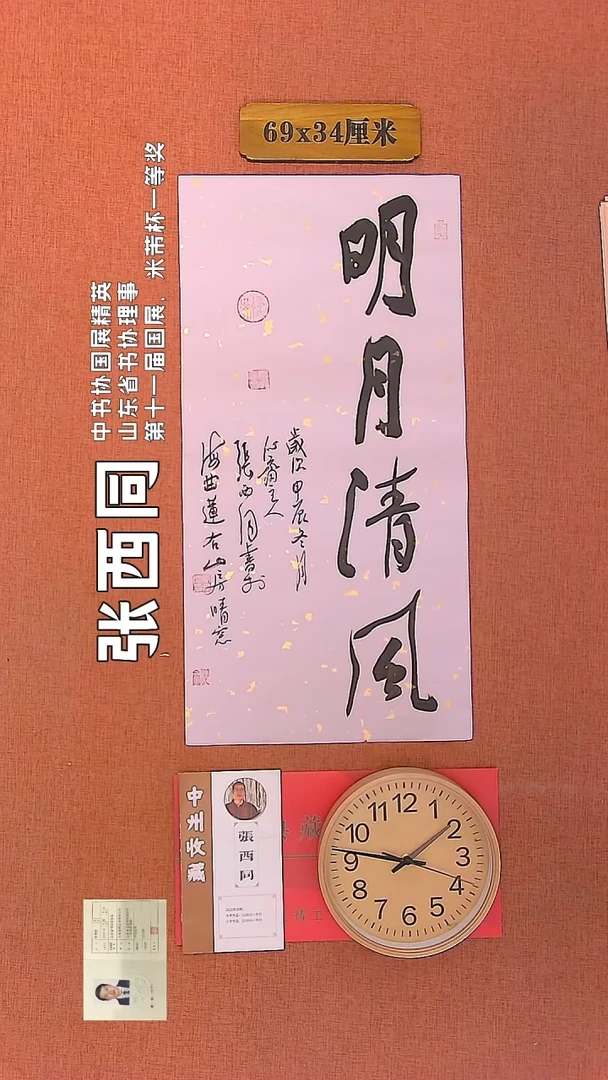 69x34厘米
明月清风
歲次甲辰冬月
心齋主人
張西同書於
海曲蓮右山房晴窓
张西同
中书协国展精英
山东省书协理事
第十一届国展，米芾杯一等奖
張西同
藏
12
1
2
3
4
5
6
7
8
9
10
11